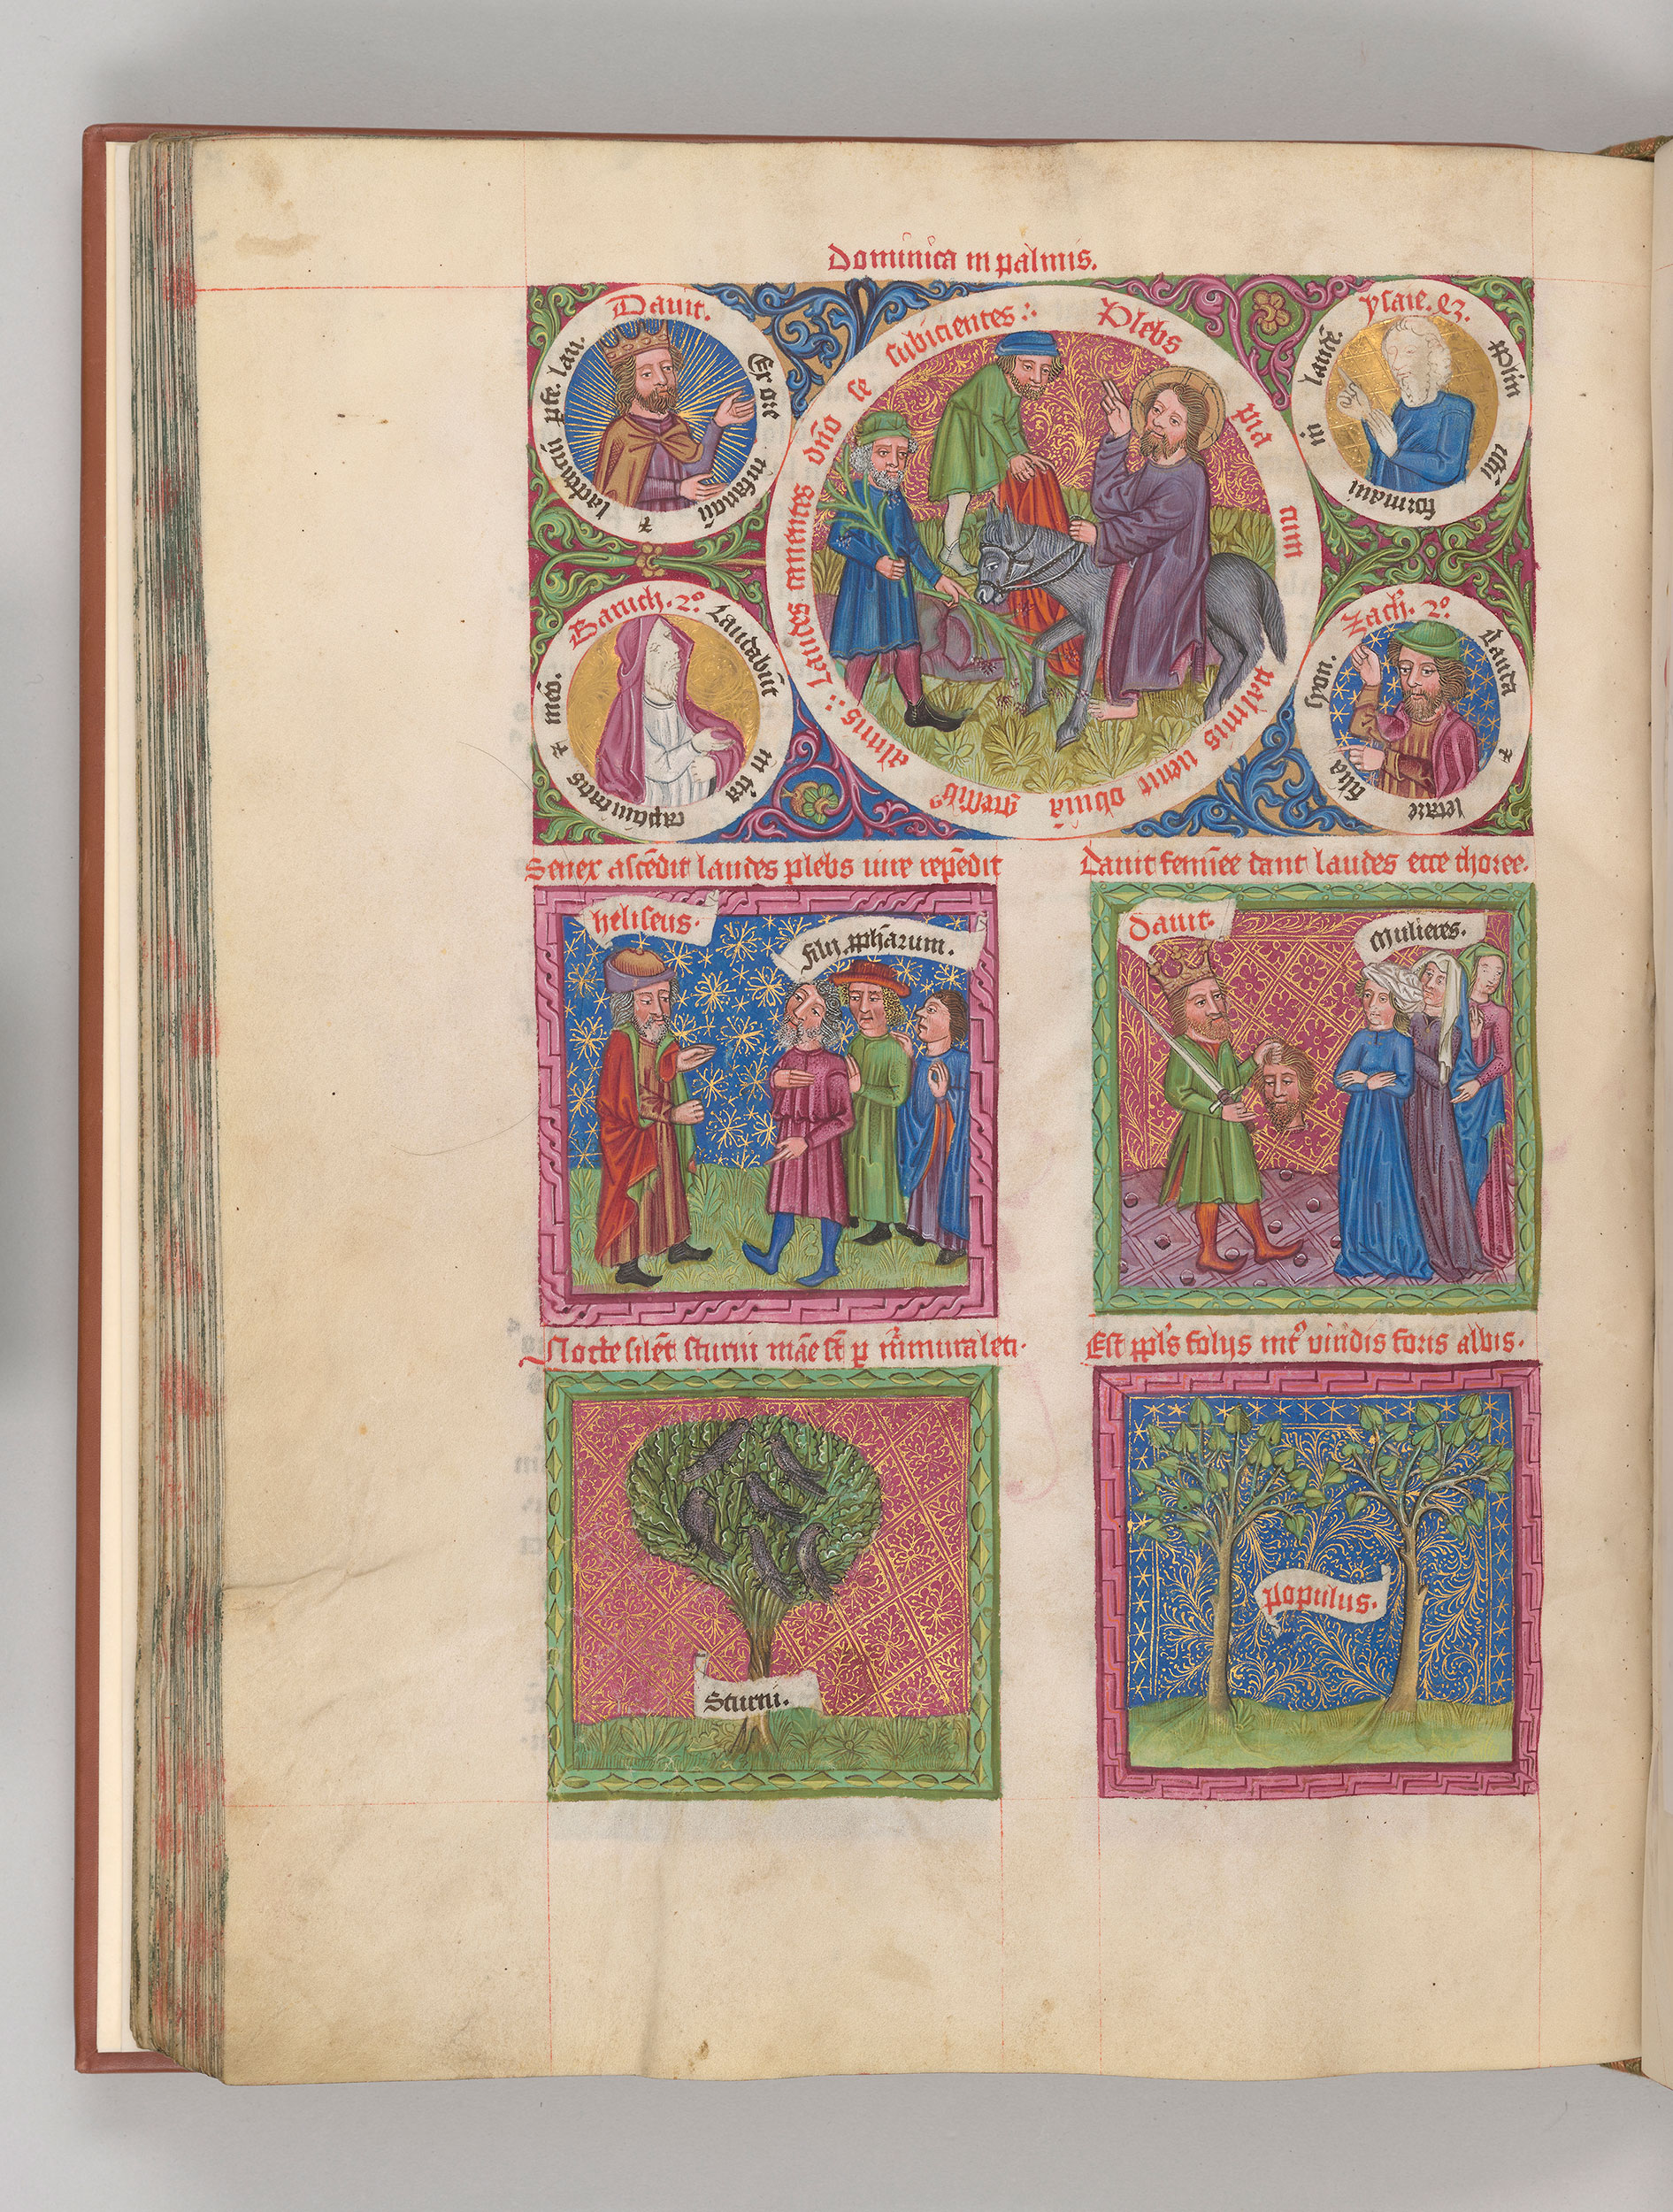 Dominica in palmis.
Dauit.
Ex ore infanciū ⁊ lactenciū pfe. lau.
Plebs pia cum palmis uenit obuia gressibꝫ almis : Laudes canentes dño se subicientes :
ysaie. 43.
Pplm istū formaui in laudē.
Baruch. 2º
Laudabūt in ⁊ meō.
Zach. 2º
Lauda ⁊ letare filia syon.
Senex ascēdit laudes plebs uire repēdit
Dauit femīee dant laudes ecce choree.
heliseus.
filij pphārum.
Dauit.
Mulieres.
Nocte silēt sturni māe st̄ p m̄mura leti.
Est ppls folijs intꝰ viridis foris albis.
Sturni.
populus.